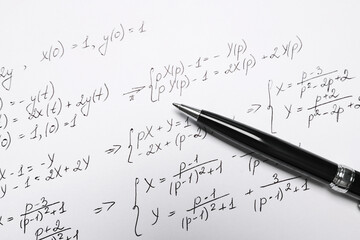 2y, x(0) = 1, y(0) = 1
= -y(t)
x(t) + 2y(t)
= 1, y(0) = 1
=> { pX(p) - 1 = -Y(p)
pY(p) - 1 = 2X(p) + 2Y(p)
=> { X = p-3 / p²-2p+2
Y = p+2 / p²-2p+2
X - 1 = -Y
- 1 = 2X + 2Y
=> { pX + Y = 1
-2X + (p-2)
p-3 / (p-1)²+1
p+2 / (p-1)²+1
=> { X = p-1 / (p-1)²+1 -
Y = p-1 / (p-1)²+1 + 3 / (p-1)²+1